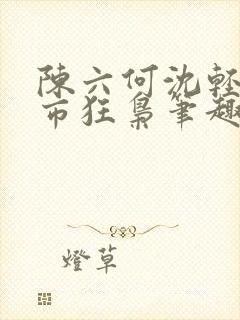 陳六何沈輕
市狂梟筆趣
燈草